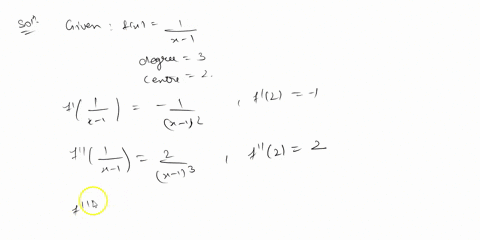 Solⁿ. Given : f(x) = 1/(x-1)
degree = 3
centre = 2.
f'(1/(x-1)) = -1/(x-1)², f'(2) = -1
f''(1/(x-1)) = 2/(x-1)³, f''(2) = 2
f'''